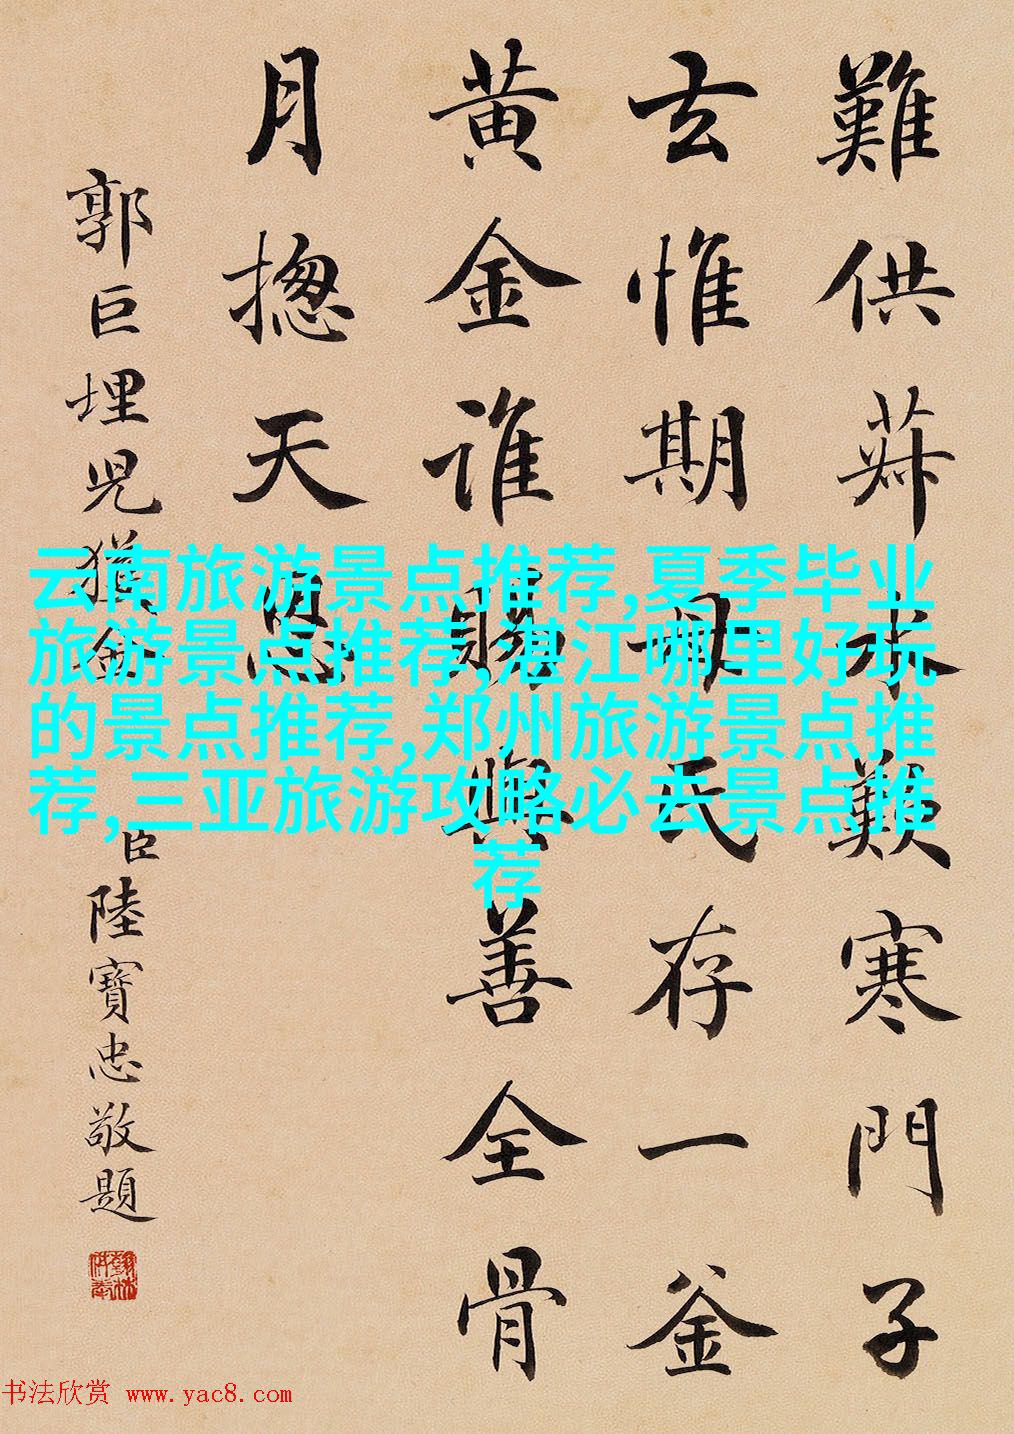 難供菽水艱寒門子
玄惟期母氏存一釜
黄金誰賜與善全骨
月揔天恩
郭巨埋児獨金
臣陸寶忠敬題
云南旅游景点推荐,夏季毕业
旅游景点推荐,湛江哪里好玩
的景点推荐,郑州旅游景点推
荐,三亚旅游攻略必去景点推
荐
书法欣赏 www.yac8.com